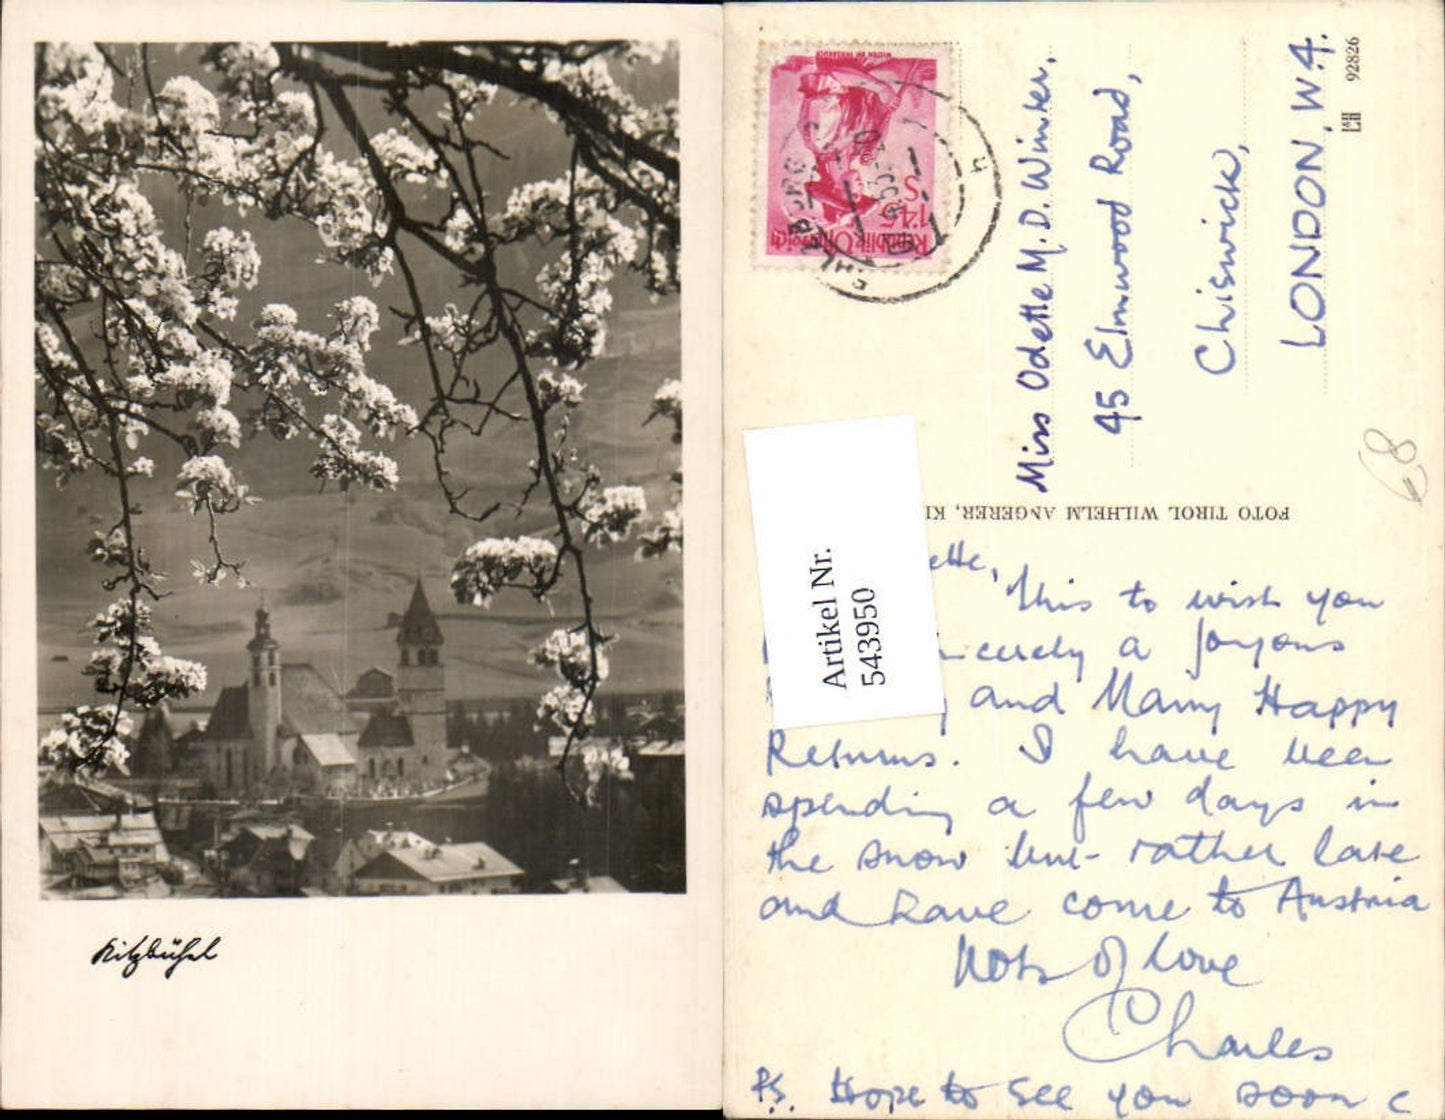 Kitzbühel
Republik Österreich
S 1.45
Miss Odette M. D. Winter,
45 Elmwood Road,
Chiswick,
LONDON, W.4.
92826
68
FOTO TIROL WILHELM ANGERER, KI
Artikel Nr.
543950
ette,
This to wish you
cerely a Joyous
and Many Happy
Returns. I have been
spending a few days in
the snow but rather late
and have come to Austria
Lots of love
Charles
P.S. Hope to see you soon C